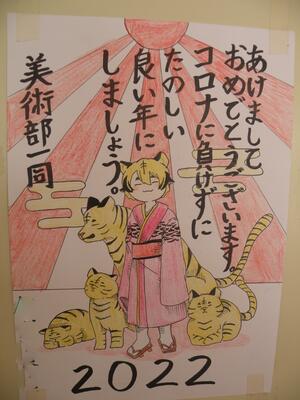 あけまして
おめでとうございます。
コロナに負けずに
たのしい
良い年に
しましょう。
美術部一同
2022